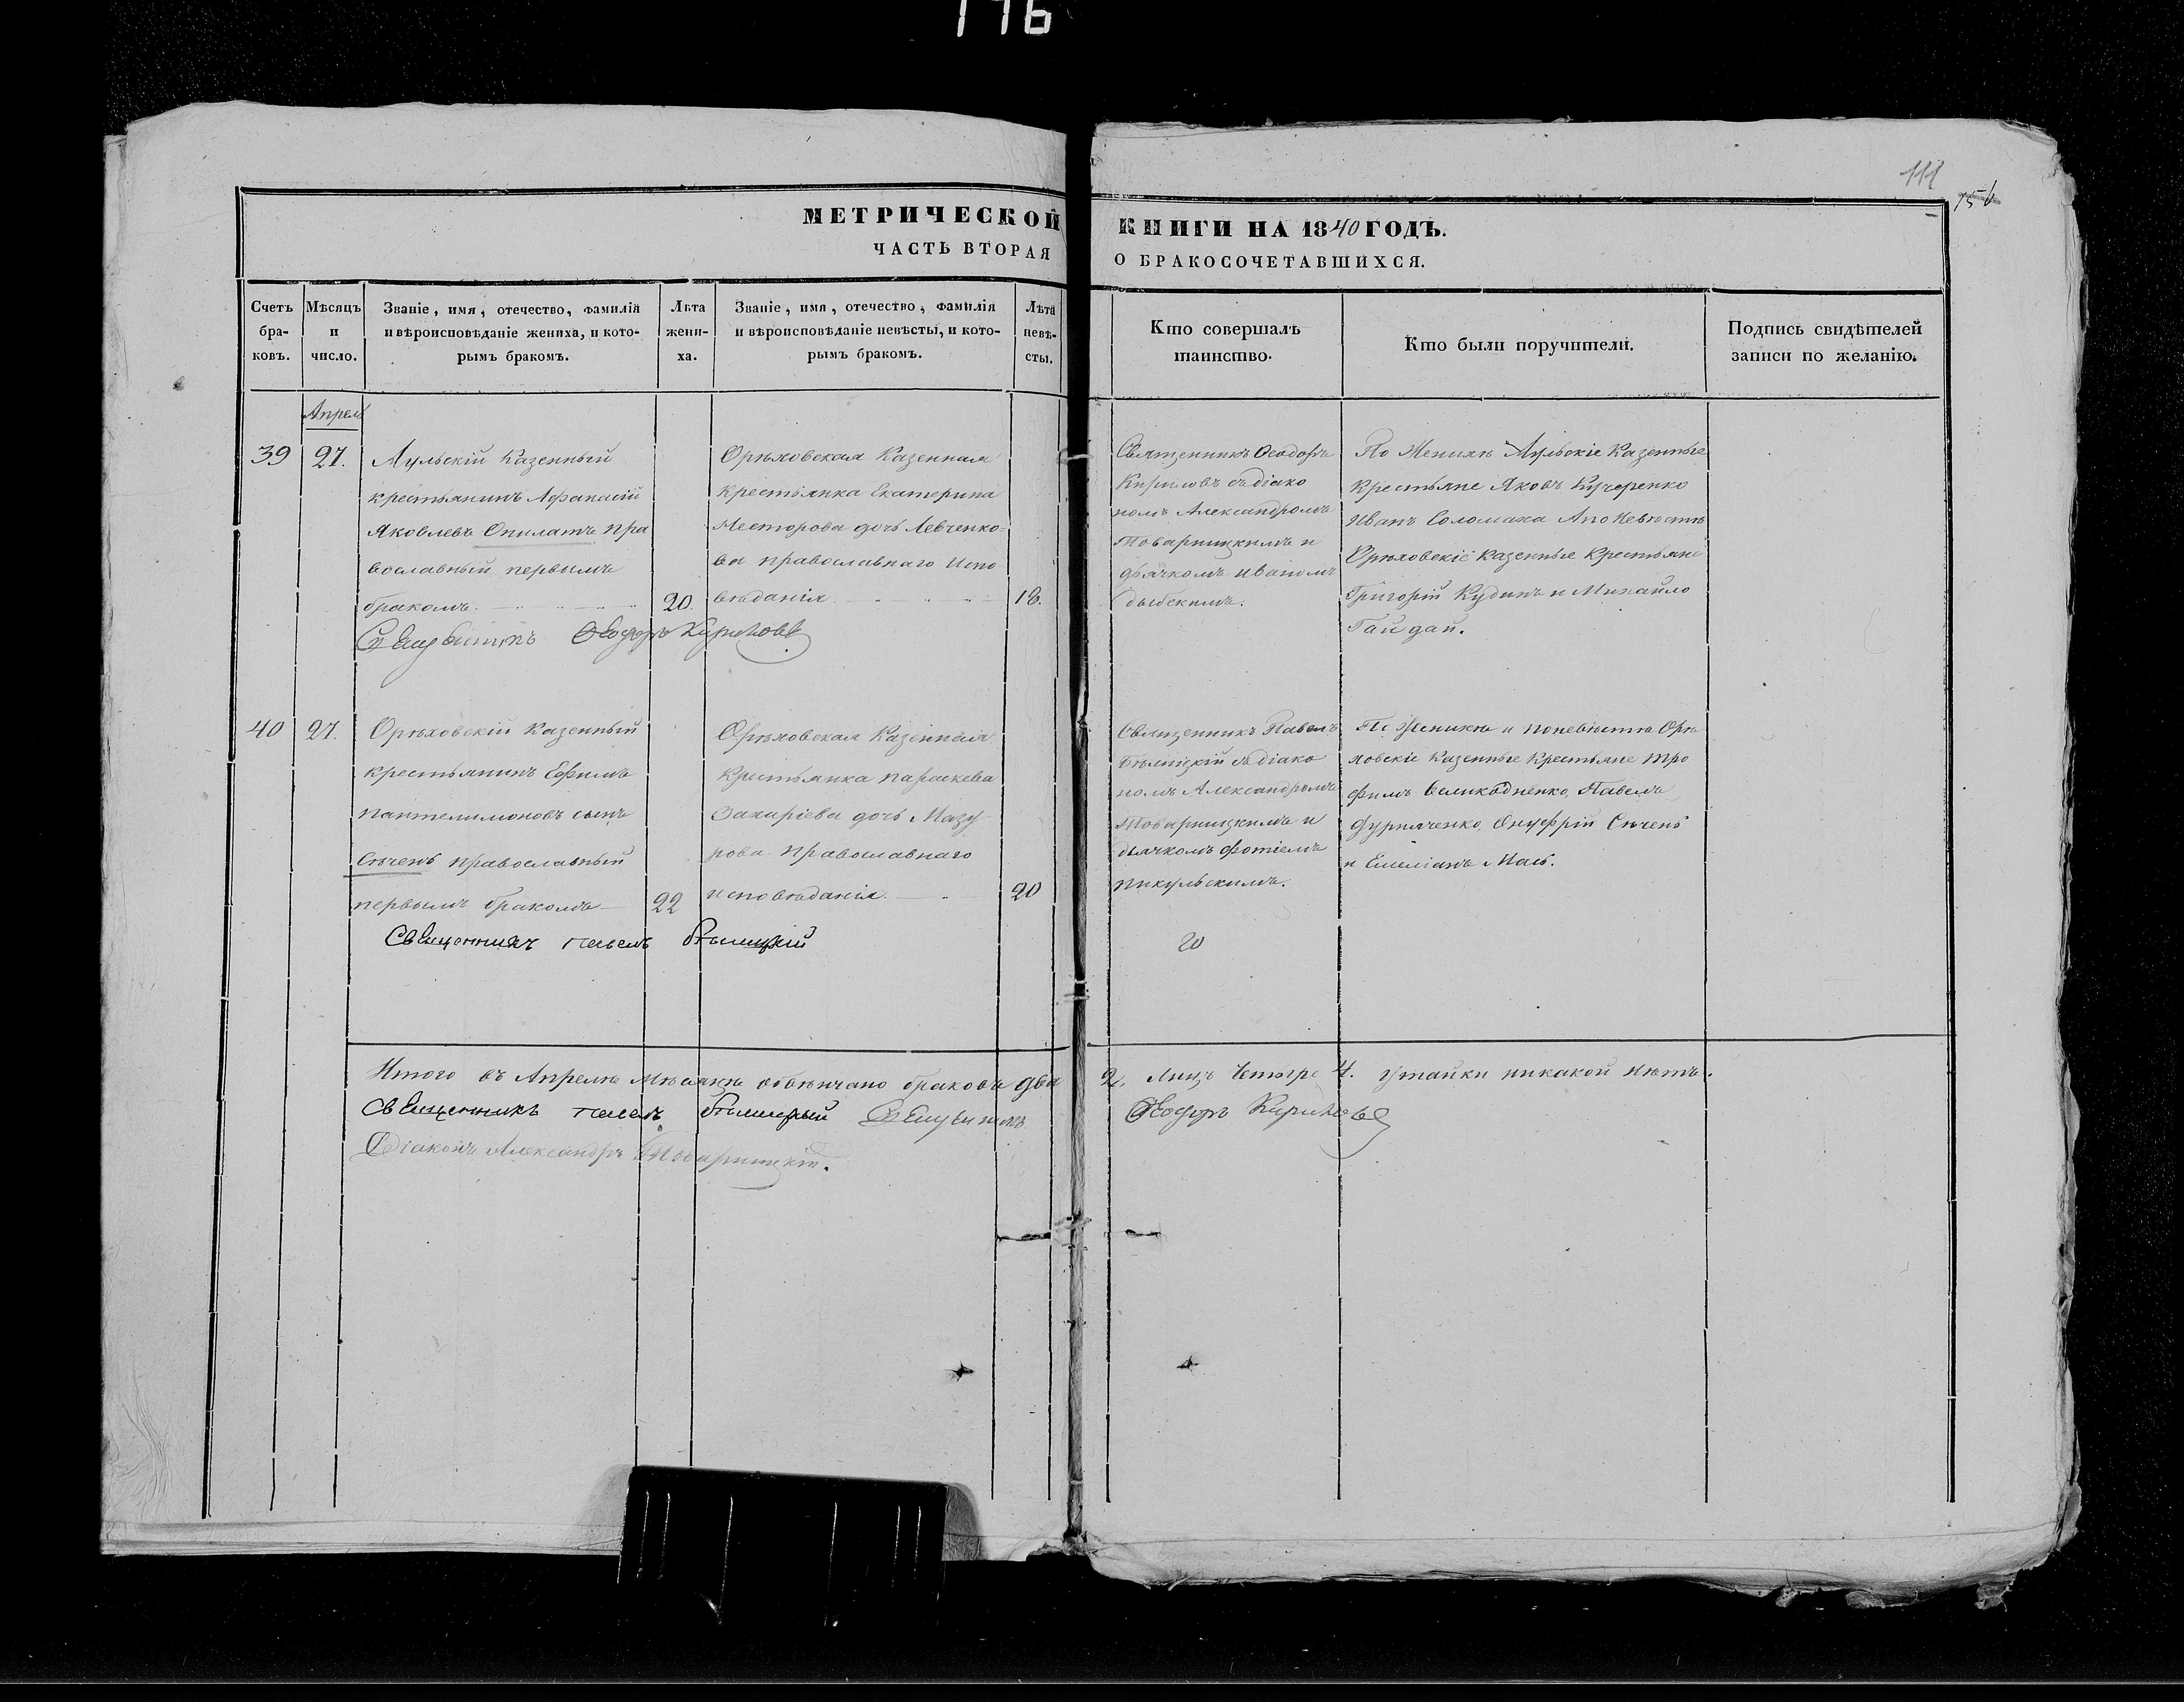 116
111
156
МЕТРИЧЕСКОЙ КНИГИ НА 1840 ГОДЪ.
ЧАСТЬ ВТОРАЯ О БРАКОСОЧЕТАВШИХСЯ.
Счетъ бра-ковъ.
Мѣсяцъ и число.
Званіе, имя, отечество, фамилія
и вѣроисповѣданіе жениха, и кото-
рымъ бракомъ.
Лѣта жени-ха.
Званіе, имя, отечество, фамилія
и вѣроисповѣданіе невѣсты, и кото-
рымъ бракомъ.
Лѣта невѣ-сты.
Кто совершалъ
таинство.
Кто были поручители.
Подпись свидѣтелей
записи по желанію.
Апрель
39
27.
Аульскій Казенный
крестьянинъ Афанасій
Яковлевъ Опилатъ пра
вославный первымъ
бракомъ.
20.
Орѣховская Казенная
крестьянка Екатерина
Несторова дочь Левченко-
ва православнаго испо
вѣданія
18.
Священникъ Ѳеодоръ
Кириловъ съ діако
номъ Александромъ
Товарницкимъ и
дьячкомъ Иваномъ
По Женихѣ Аульскіе Казенные
Крестьяне Яковъ Кучеренко
Иванъ Соломаха А по Невѣстѣ
Орѣховскіе казенные Крестьяне
Григорій Кудинъ и Михайло
Гайдай.
Священникъ Ѳеодоръ Кириловъ
40
27.
Орѣховскій Казенный
крестьянинъ Ефимъ
Пантелимоновъ сынъ
Сѣчень православный
первымъ бракомъ
22
Орѣховская Казенная
Крестьянка Параскева
Захаріева дочь Мазу
рова православнаго
исповѣданія.
20
Священникъ Павелъ
Бѣлицкій съ діако
номъ Александромъ
Товарницкимъ и
дьячкомъ Фотіемъ
Пикульскимъ.
По Женихѣ и по невѣстѣ Орѣ
ховскіе Казенные Крестьяне Тро
фимъ Великодненко, Павелъ
Онуфрій Сѣчень
и Емеліанъ Мась.
Священникъ Павелъ Бѣлицкій
20
Итого въ Апрелѣ Мѣсяцѣ обвѣнчано браковъ два 2. Лицъ Четыре 4. Утайки никакой нѣтъ.
Священникъ Павелъ Бѣлицкій Священникъ Ѳеодоръ Кириловъ
Діаконъ Александръ Товарницкій.